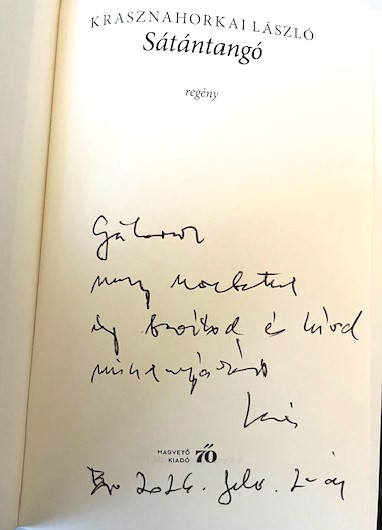 KRASZNAHORKAI LÁSZLÓ
Sátántangó
regény
Gábornak
nagy szeretettel
barátod és híved
Laci
MAGVETŐ
KIADÓ 70
Bp. 2026. febr. 2-án